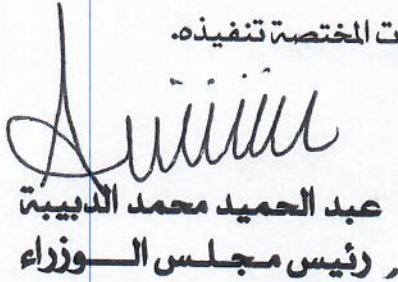 ت المختصة تنفيذه.
عبد الحميد محمد الدبيبة
رئيس مجلس الوزراء